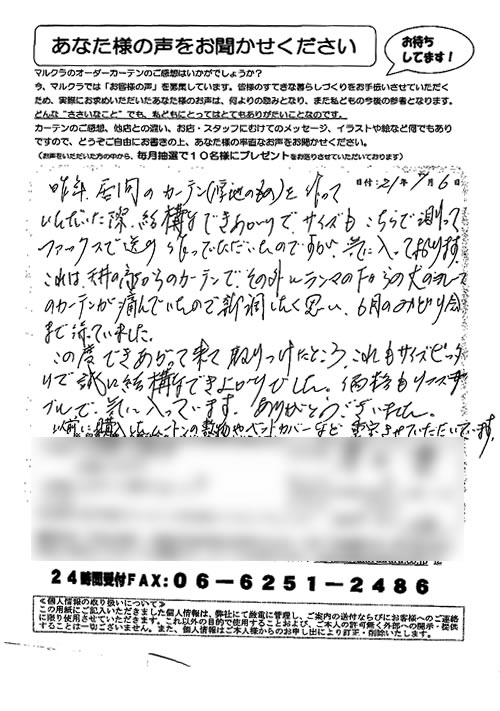 あなた様の声をお聞かせください
お待ち
してます!
マルクラのオーダーカーテンのご感想はいかがでしょうか?
今、マルクラでは「お客様の声」を募集しています。皆様のすてきな暮らしづくりをお手伝いさせていただく
ため、実際にお求めいただいたあなた様のお声は、何よりの励みとなり、また私どもの今後の参考となります。
どんな“ささいなこと”でも、私どもにとってはとてもありがたいことなのです。
カーテンのご感想、他店との違い、お店・スタッフにむけてのメッセージ、イラストや絵など何でもあり
ですので、どうぞご自由にお書きの上、あなた様の率直なお声をお聞かせください。
(お声をいただいた方の中から、毎月抽選で10名様にプレゼントをお送りさせていただいております)
日付:21年 月6日
昨年、居間のカーテン()を作って
いただいた際、結構なできあがりで、サイズもこちらで測って
ファックスで送り作っていただいたのですが、気に入っております。
これは、天井の高からのカーテンで、その外にランマの下からの丈の
のカーテンが痛んでいたので新調したく思い、6月のみどり会
まで待っていました。
この度できあがって来て取りつけたところ、これもサイズピッタ
リで誠に結構なできよがりでした。価格もリーズナ
ブルで、気に入っています。ありがとうございました。
以前に購入したムートンの敷物やベッドカバーなど重宝させていただいています。
24時間受付FAX:06-6251-2486
≪個人情報の取り扱いについて≫
この用紙にご記入いただきました個人情報は、弊社にて厳重に管理し、ご案内の送付ならびにお客様へのご連絡
に限り使用させていただきます。これ以外の目的で使用することおよび、ご本人の許可無く外部への開示・提供
することは一切ございません。また、個人情報はご本人様からのお申し出により訂正・削除いたします。